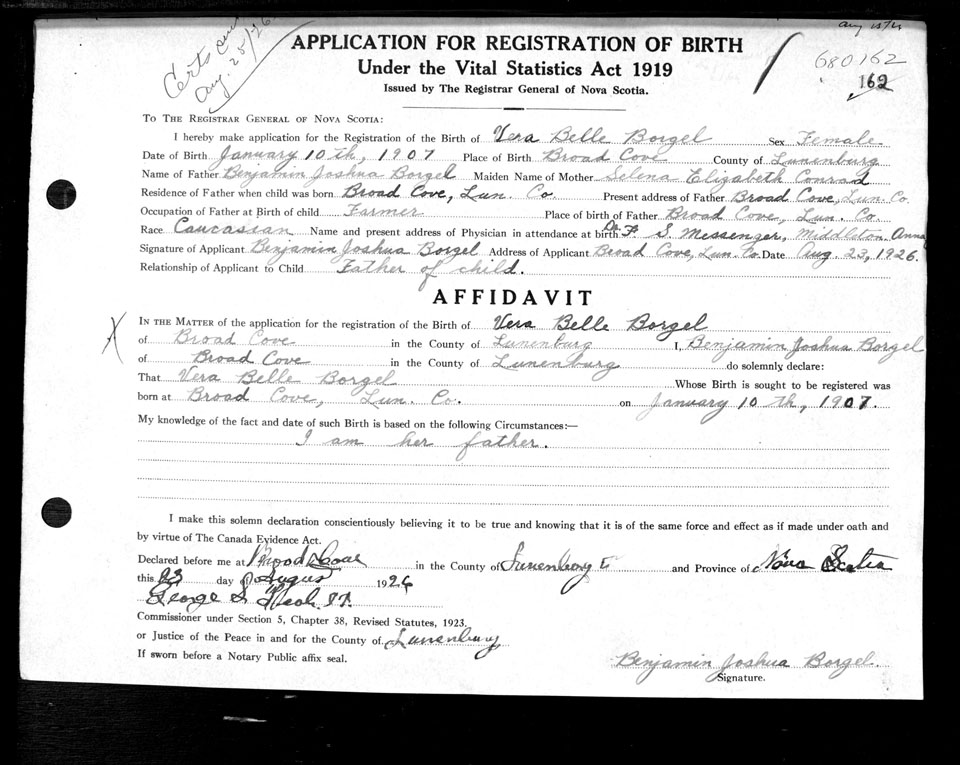 Aug.
Certs
Aug. 25/26
680162
162
APPLICATION FOR REGISTRATION OF BIRTH
Under the Vital Statistics Act 1919
Issued by The Registrar General of Nova Scotia.
TO THE REGISTRAR GENERAL OF NOVA SCOTIA:
I hereby make application for the Registration of the Birth of Vera Belle Borgel Sex Female
Date of Birth January 10th, 1907 Place of Birth Broad Cove County of Lunenburg
Name of Father Benjamin Joshua Borgel Maiden Name of Mother Selena Elizabeth Conrad
Residence of Father when child was born Broad Cove, Lun. Co. Present address of Father Broad Cove, Lun. Co.
Occupation of Father at Birth of child Farmer Place of birth of Father Broad Cove, Lun. Co.
Race Caucasian Name and present address of Physician in attendance at birth Dr. F. S. Messenger, Middleton, Anna
Signature of Applicant Benjamin Joshua Borgel Address of Applicant Broad Cove, Lun. Co. Date Aug. 23, 1926.
Relationship of Applicant to Child Father of child.
AFFIDAVIT
X
IN THE MATTER of the application for the registration of the Birth of Vera Belle Borgel
of Broad Cove in the County of Lunenburg I, Benjamin Joshua Borgel
of Broad Cove in the County of Lunenburg do solemnly declare:
That Vera Belle Borgel Whose Birth is sought to be registered was
born at Broad Cove, Lun. Co. on January 10th, 1907.
My knowledge of the fact and date of such Birth is based on the following Circumstances:—
I am her father.
I make this solemn declaration conscientiously believing it to be true and knowing that it is of the same force and effect as if made under oath and
by virtue of The Canada Evidence Act.
Declared before me at Broad Cove in the County of Lunenburg and Province of Nova Scotia
this 23 day of August 1926
George S.
Commissioner under Section 5, Chapter 38, Revised Statutes, 1923.
or Justice of the Peace in and for the County of Lunenburg
If sworn before a Notary Public affix seal.
Benjamin Joshua Borgel.
Signature.